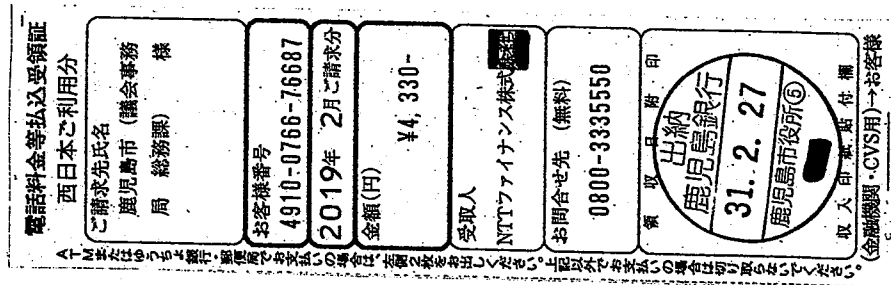 電話料金等払込受領証
西日本ご利用分
ご請求先氏名
鹿児島市（議会事務
局 総務課） 様
お客様番号
4910-0766-76687
2019年 2月ご請求分
金額(円)
¥4,330-
受取人
NTTファイナンス株式会社
お問合せ先 (無料)
0800-3335550
領収日附印
出納
鹿児島銀行
31.2.27
鹿児島市役所⑤
収入印紙貼付欄
(金融機関・CVS用)→お客様
ATMまたはゆうちょ銀行・郵便局でお支払いの場合は、左側2枚をお出しください。上記以外でお支払いの場合は切り取らないでください。